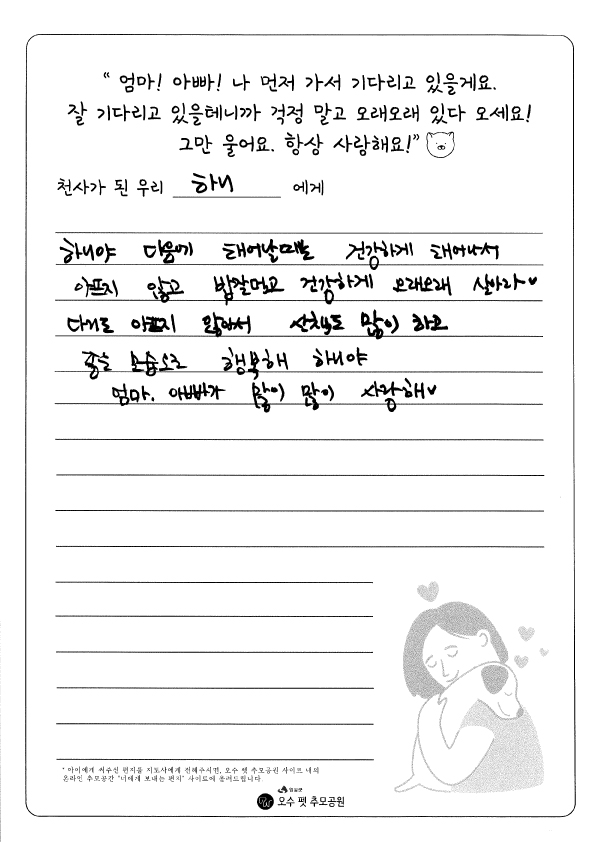 “ 엄마! 아빠! 나 먼저 가서 기다리고 있을게요.
잘 기다리고 있을테니까 걱정 말고 오래오래 있다 오세요!
그만 울어요. 항상 사랑해요!”
천사가 된 우리 하니 에게
하니야 다음에 태어날때는 건강하게 태어나서
아프지 않고 밥잘먹고 건강하게 오래오래 살아라♥
다시는 아프지 말아서 산책도 많이 하고
좋은 모습으로 행복해 하니야
엄마, 아빠가 많이 많이 사랑해♥
* 아이에게 써주신 편지를 지도사에게 전해주시면, 오수 펫 추모공원 사이트 내의
온라인 추모공간 "너에게 보내는 편지" 사이트에 올려드립니다.
오수 펫 추모공원